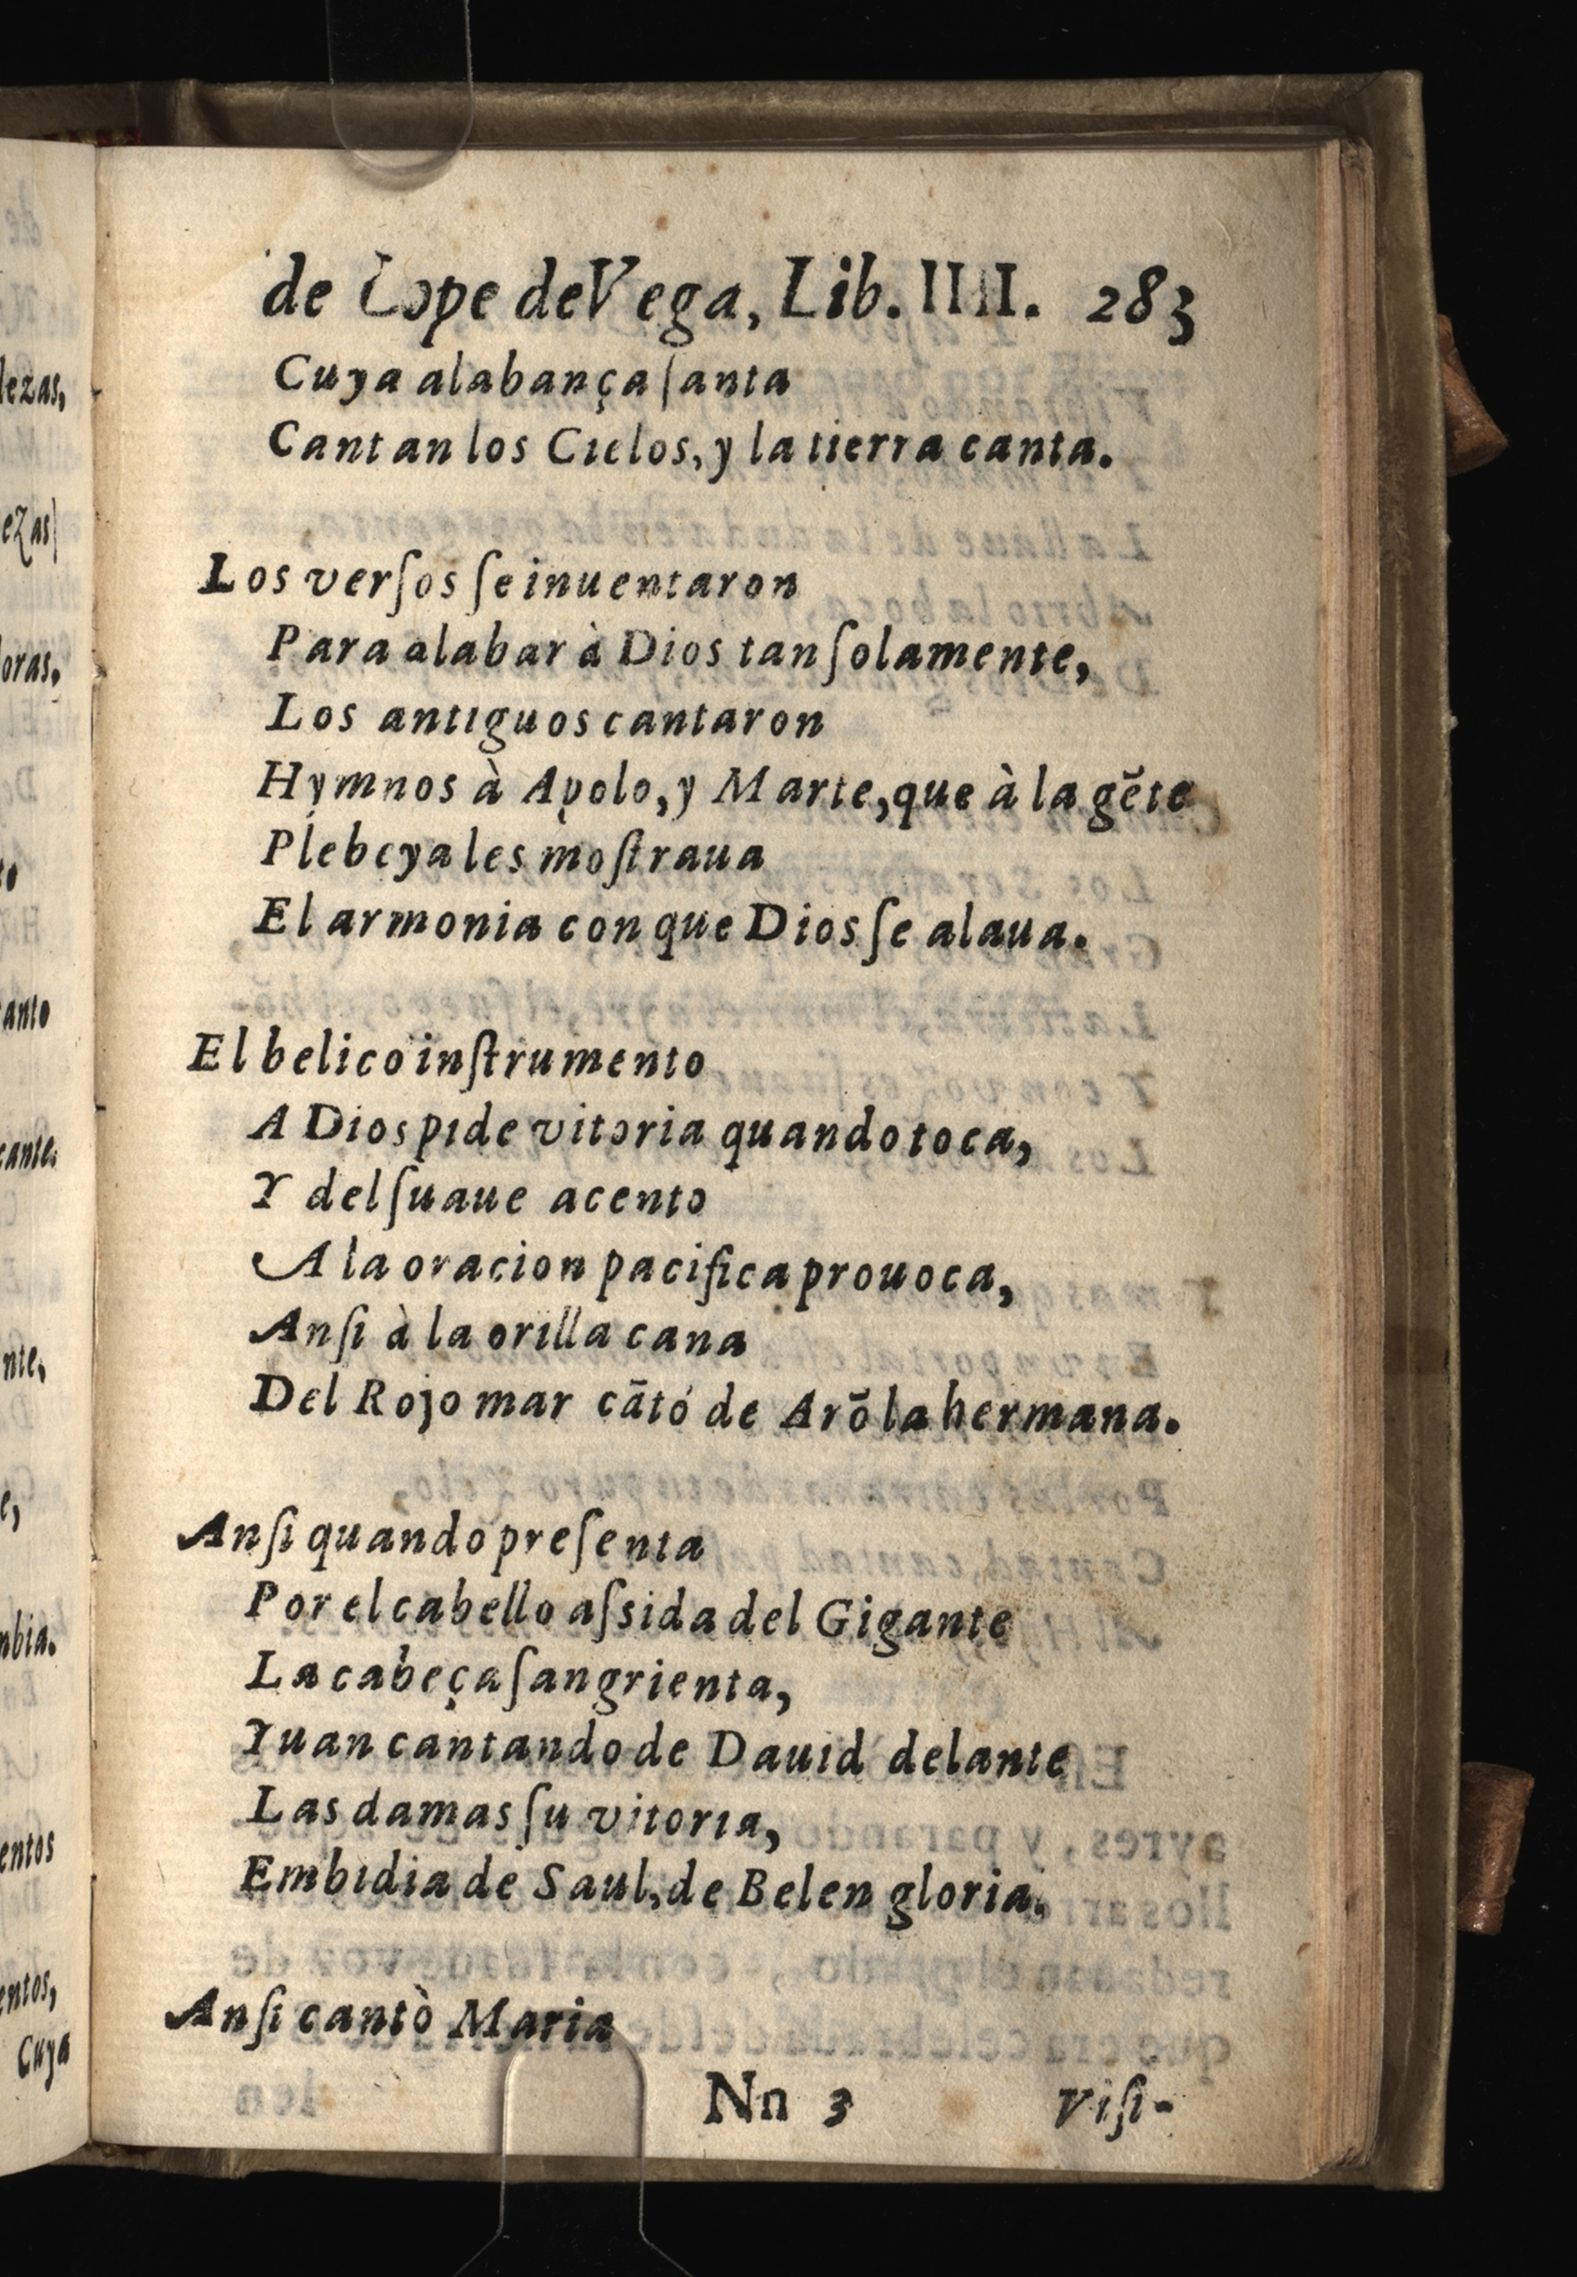 de Lope de Vega, Lib. IIII. 283
Cuya alabança ſanta
Cantan los Cielos, y la tierra canta.
Los verſos ſe inuentaron
Para alabar à Dios tan ſolamente,
Los antiguos cantaron
Hymnos à Apolo, y Marte, que à la gẽte
Plebeya les moſtraua
El armonia con que Dios ſe alaua.
El belico inſtrumento
A Dios pide vitoria quando toca,
Y del ſuaue acento
A la oracion pacifica prouoca,
Anſi à la orilla cana
Del Rojo mar cãtó de Arõ la hermana.
Anſi quando preſenta
Por el cabello aſsida del Gigante
La cabeça ſangrienta,
Yuan cantando de Dauid delante
Las damas ſu vitoria,
Embidia de Saul, de Belen gloria.
Anſi cantò Maria
Nn 3 Viſi-
lezas,
ezas
oras,
anto
cante.
nte,
e,
mbia.
entos
entos,
Cuya